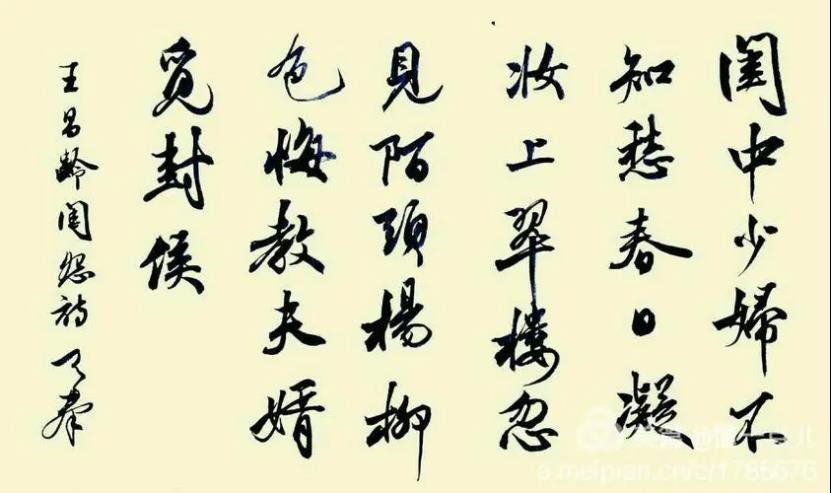 閨中少婦不
知愁春日凝
妆上翠樓忽
見陌頭楊柳
色悔教夫婿
覓封侯
王昌齡閨怨詩
a.meipian.cn/c/1785676